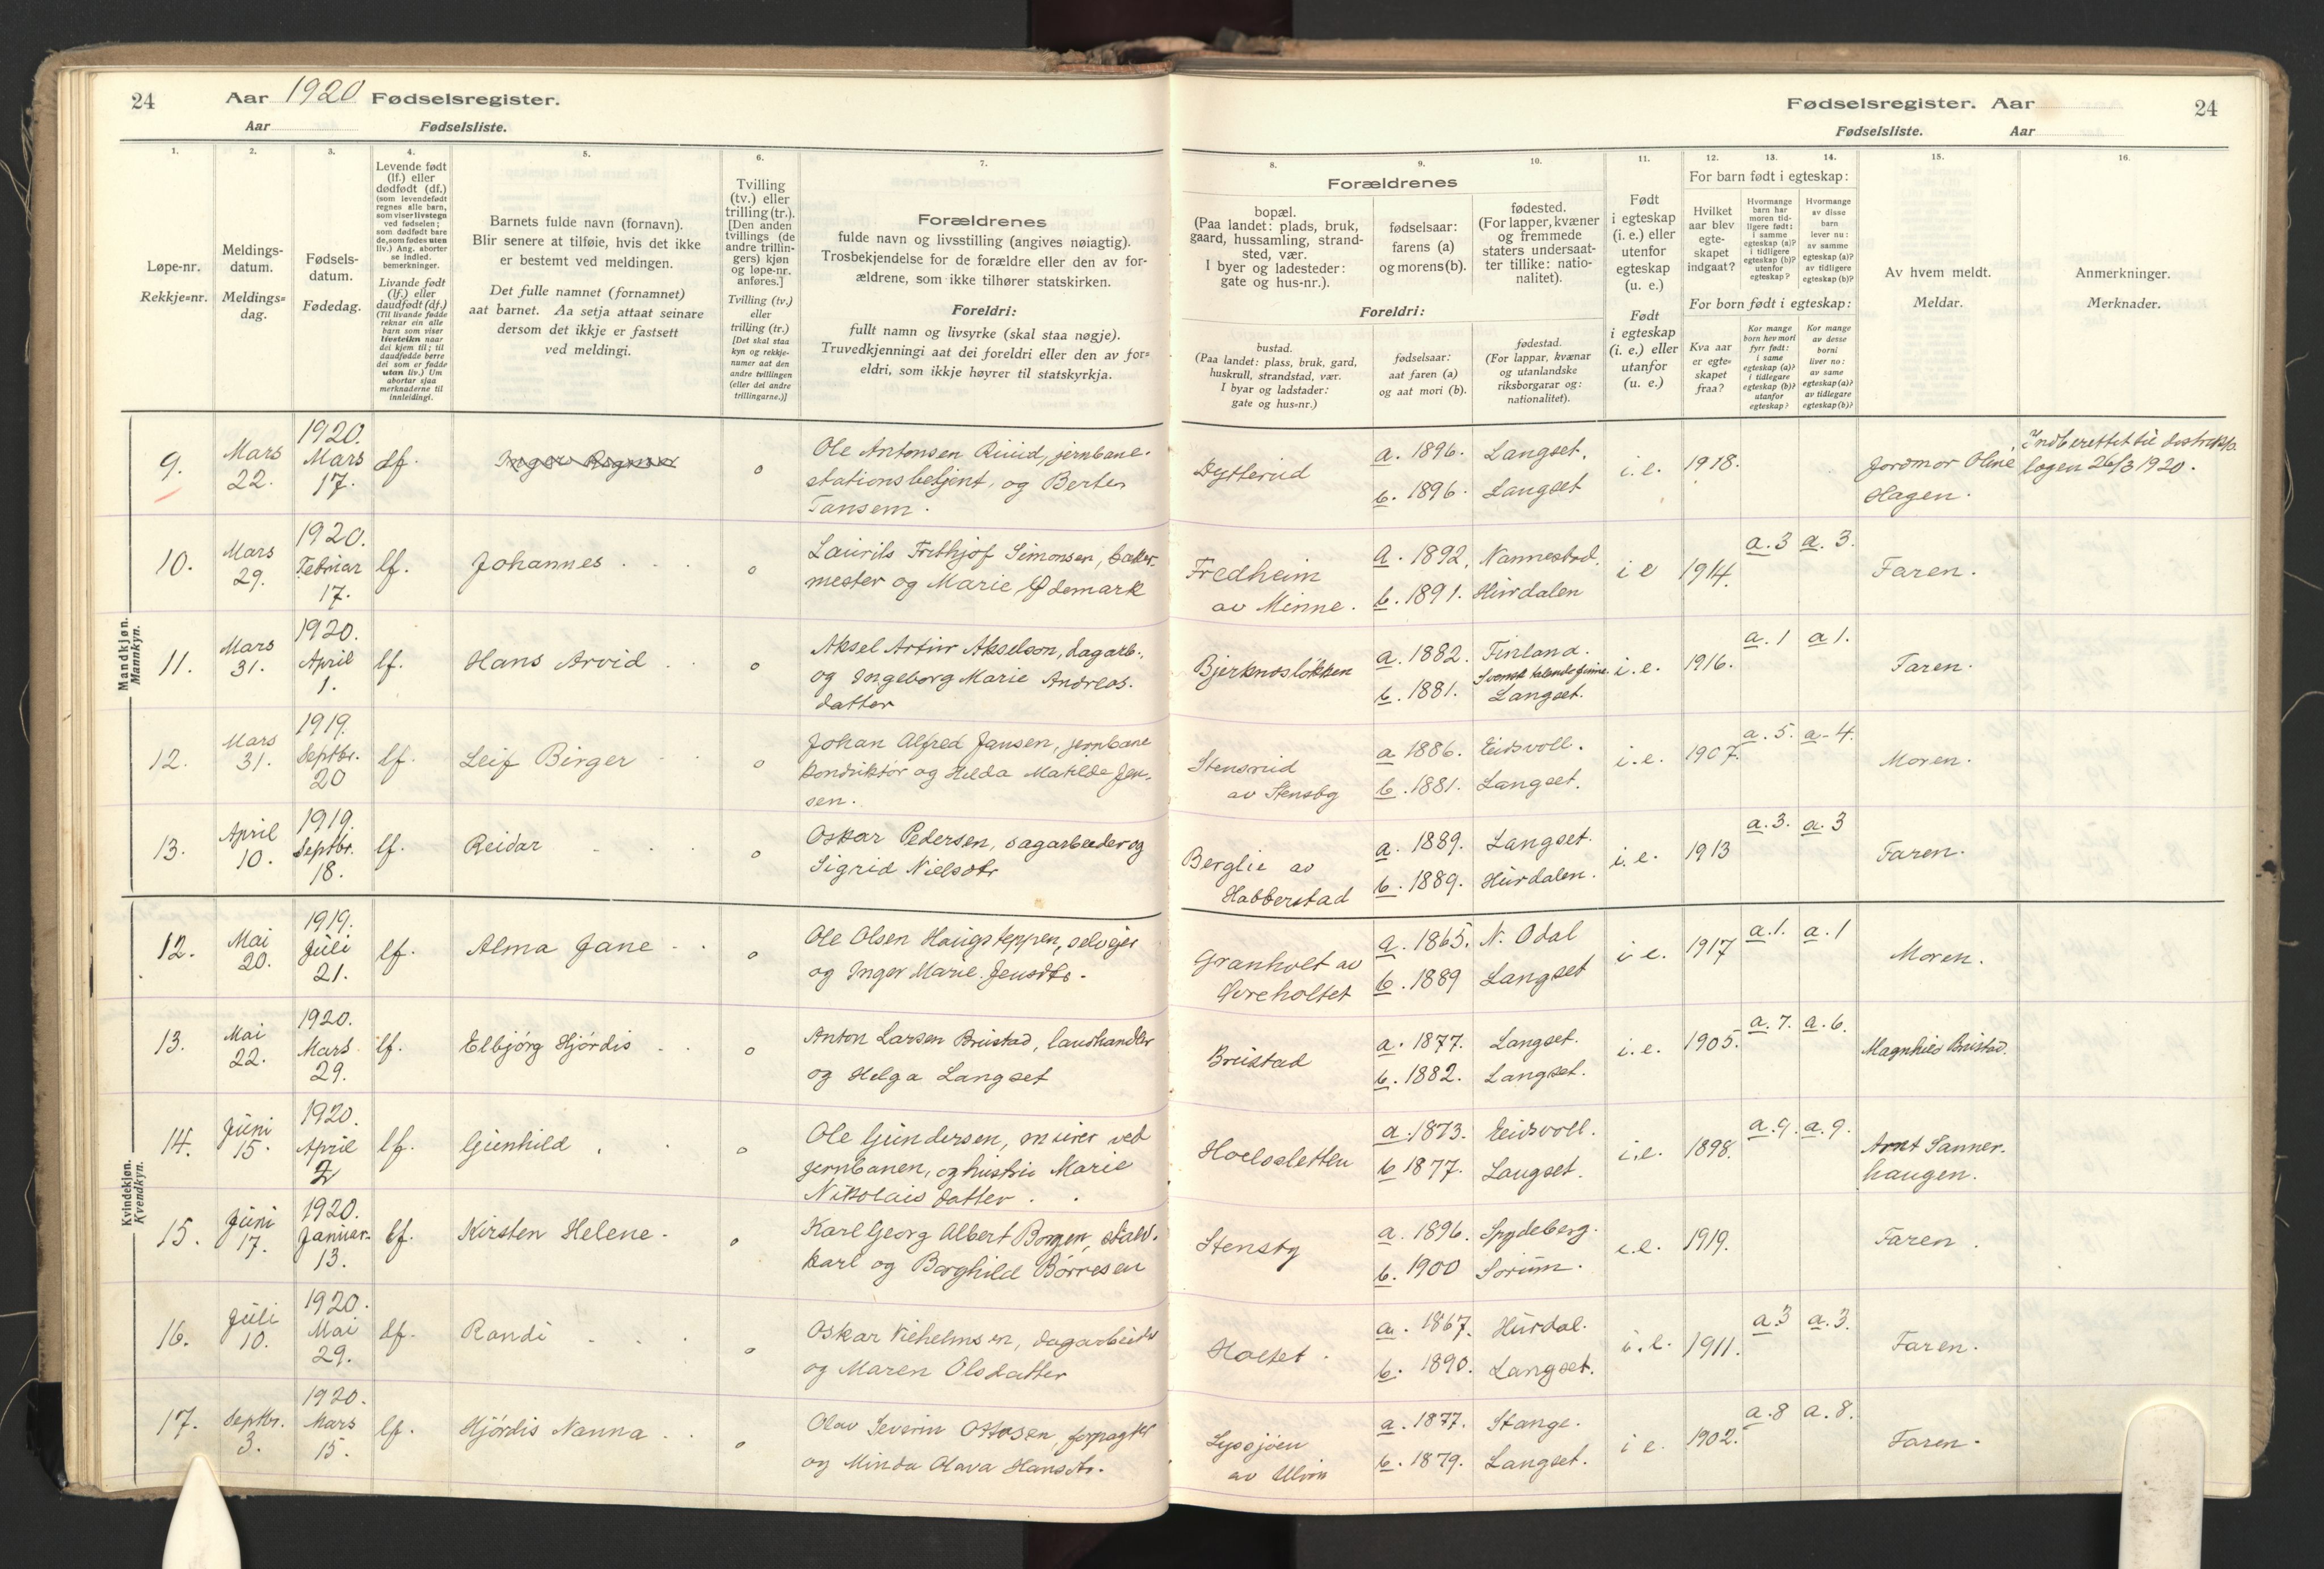 24 Aar 1920 Fødselsregister.
Aar Fødselsliste.
Fødselsregister. Aar 24
Fødselsliste. Aar
1.
Løpe-nr.
Rekkje=nr.
2.
Meldings-
datum.
Meldings=
dag.
3.
Fødsels-
datum.
Fødedag.
4.
Levende født
(lf.) eller
dødfødt (df.)
(som levendefødt
regnes alle barn,
som viser livstegn
ved fødselen;
som dødfødt bare
de, som fødes uten
liv.) Ang. aborter
se indled.
bemerkninger.
Livande født
(lf.) eller
daudfødt (df.)
(Til livande fødde
reknar ein alle
barn som viser
livsteikn naar
dei kjem til; til
daudfødde berre
dei som er fødde
utan liv.) Um
abortar sjaa
merknaderne til
innleidingi.
5.
Barnets fulde navn (fornavn).
Blir senere at tilføie, hvis det ikke
er bestemt ved meldingen.
Det fulle namnet (fornamnet)
aat barnet. Aa setja attaat seinare
dersom det ikkje er fastsett
ved meldingi.
6.
Tvilling
(tv.) eller
trilling (tr.).
[Den anden
tvillings (de
andre trillin-
gers) kjøn
og løpe-nr.
anføres.]
Tvilling (tv.)
eller
trilling (tr.)
[Det skal staa
kyn og rekkje-
numer aat den
andre tvillingen
(eller dei andre
trillingarne.)]
7.
Forældrenes
fulde navn og livsstilling (angives nøiagtig).
Trosbekjendelse for de forældre eller den av for-
ældrene, som ikke tilhører statskirken.
Foreldri:
fullt namn og livsyrke (skal staa nøgje).
Truvedkjenningi aat dei foreldri eller den av for=
eldri, som ikkje høyrer til statskyrkja.
Forældrenes
8.
bopæl.
(Paa landet: plads, bruk,
gaard, hussamling, strand-
sted, vær.
I byer og ladesteder:
gate og hus-nr.).
9.
fødselsaar:
farens (a)
og morens (b).
10.
fødested.
(For lapper, kvæner
og fremmede
staters undersaat-
ter tillike: natio-
nalitet).
Foreldri:
bustad.
(Paa landet: plass, bruk, gard,
huskrull, strandstad, vær.
I byar og ladstader:
gate og hus=nr.)
fødselsaar:
aat faren (a)
og aat mori (b).
fødestad.
(For lappar, kvænar
og utanlandske
riksborgarar og:
nationalitet).
11.
Født
i egteskap
(i. e.) eller
utenfor
egteskap
(u. e.)
Født
i egteskap
(i. e.) eller
utanfor
(u. e.)
For barn født i egteskap:
12.
Hvilket
aar blev
egte-
skapet
indgaat?
13.
Hvormange
barn har
moren tid-
ligere født:
i samme
egteskap (a)?
i tidligere
egteskap (b)?
utenfor
egteskap?
14.
Hvormange
av disse
barn
lever nu:
av samme
egteskap (a)?
av tidligere
egteskap (b)?
For born født i egteskap:
Kva aar
er egte=
skapet
fraa?
Kor mange
born hev mori
fyrr født:
i same
egteskap (a)?
i tidlegare
egteskap (b)?
utanfor
egteskap?
Kor mange
av desse
borni
liver no:
av same
egteskap (a)?
av tidlegare
egteskap (b)?
15.
Av hvem meldt.
Meldar.
16.
Anmerkninger.
Merknader.
Mandkjøn.
Mannkyn.
9. Mars 22. 1920. Mars 17. df. o
Ole Antonsen Ruud, jernbane-
stationsbetjent, og Berte
Tansem.
Dytterud a. 1896. Langset. b. 1896. Langset i. e. 1918.
Jordmor Oline
Hagen.
Indberettet til
lægen 26/3 1920.
10. Mars 29. 1920. Februar 17. lf. Johannes o
Laurits Frithjof Simonsen, baker-
mester og Marie Ødemark
Fredheim
av Minne.
a. 1892. Nannestad. b. 1891. Hurdalen i e 1914. a. 3 a. 3. Faren.
11. Mars 31. 1920. April 1. lf. Hans Arvid o
Aksel Artur Akselson, dagarb.,
og Ingeborg Marie Andreas-
datter
Bjerknesløkken a. 1882. Finland.
Svensk talende finne
b. 1881. Langset. i. e. 1916. a. 1 a 1. Faren.
12. Mars 31. 1919. Septbr. 20 lf. Leif Birger o
Johan Alfred Jansen, jernbane
konduktør og Hilda Matilde Jen-
sen.
Stensrud
av Stensby
a 1886. Eidsvoll. b. 1881. Langset. i. e. 1907. a. 5. a - 4. Moren.
13. April 10. 1919. Septbr. 18. lf. Reidar o
Oskar Pedersen, sagarbeider og
Sigrid Nielsdtr
Berglie av
Habberstad
a. 1889. Langset. b. 1889. Hurdalen. i. e. 1913 a. 3. a. 3 Faren.
Kvindekjøn.
Kvendkyn.
12. Mai 20. 1919. Juli 21. lf. Alma Jane o
Ole Olsen Haugsteppen, selveier
og Inger Marie Jensdtr.
Granholt av
Øvreholtet
a. 1865. N. Odal b. 1889 Langset i e. 1917 a. 1. a. 1 Moren.
13. Mai 22. 1920. Mars 29. lf. Elbjørg Hjørdis o
Anton Larsen Brustad, landhandler
og Helga Langset
Brustad a. 1877. Langset. b. 1882. Langset. i. e. 1905. a. 7. a. 6. Magnhild Brustad.
14. Juni 15. 1920. April 2 lf. Gunhild o
Ole Gundersen, murer ved
jernbanen, og hustru Marie
Nikolaisdatter.
Hoelsletten a. 1873. Eidsvoll. b 1877. Langset. i. e. 1898. a. 9. a. 9.
Arnt Sanner-
haugen.
15. Juni 17. 1920. Januar 13. lf. Kirsten Helene o
Karl Georg Albert Borgen, stald-
karl og Borghild Børresen
Stensby a. 1896. Spydeberg. b. 1900 Sørum. i. e. 1919. Faren.
16. Juli 10. 1920. Mai 29. lf. Randi o
Oskar Vilhelmsen, dagarbeider
og Maren Olsdatter
Holtet. a. 1867. Hurdal. b. 1890. Langset. i. e. 1911. a 3 a. 3. Faren.
17. Septbr. 3. 1920. Mars 15. lf. Hjørdis Nanna o
Olav Severin Ottosen, forpagter
og Minda Olava Hansdtr.
Lyssjøen
av Ulvin
a. 1877. Stange. b. 1879. Langset. i e. 1902. a. 8 a. 8. Faren.